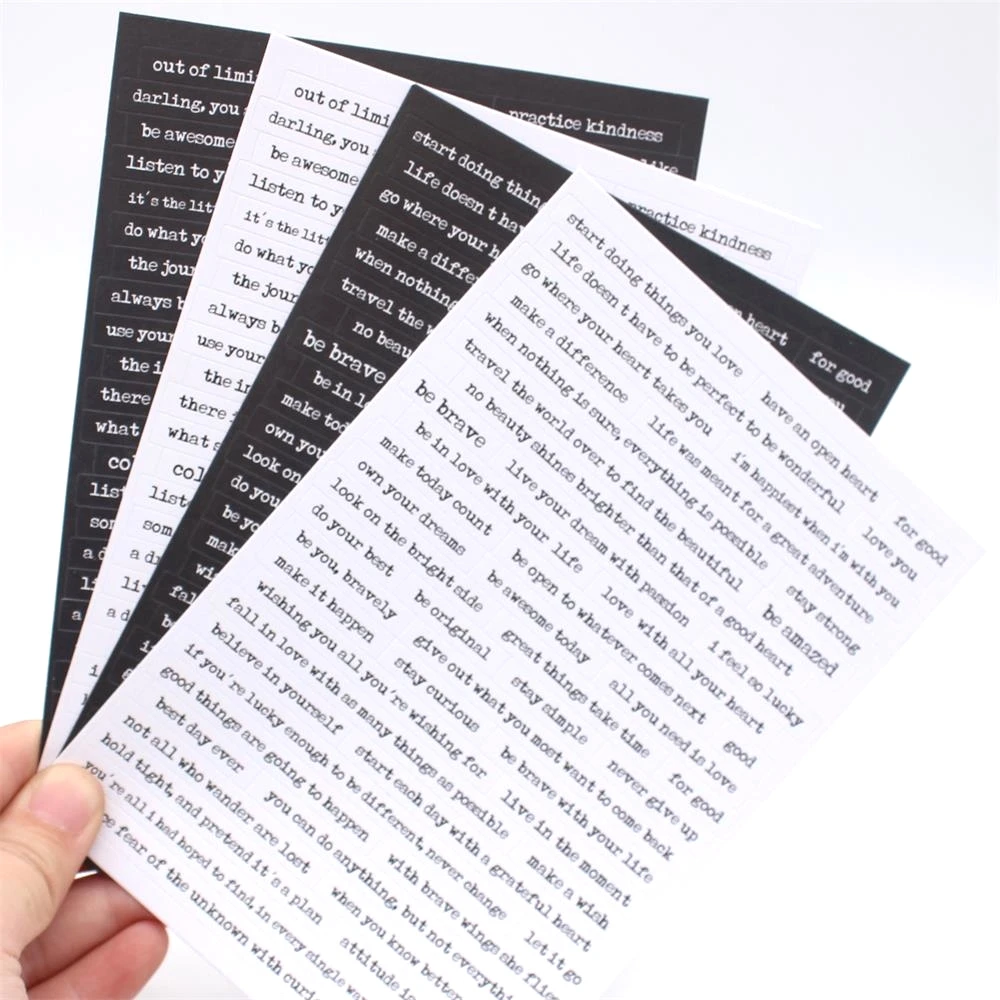 out of limi
darling, you
be awesome
listen to y
it's the lit
do what yo
the jour
always b
use your
the i
there
what
col
list
som
a d
li
a
practice kindness
like
out of limi
darling, you
be awesome
listen to y
it's the litt
do what yo
the jour
always b
use your
the in
there i
what s
col
list
som
a dr
li
a d
i
practice kindness
start doing thing
life doesn t hav
go where your h
make a diffe
when nothing
travel the w
no beau
be brave
be in l
make tod
own you
look on
do you
be yo
mak
wi
fal
be
i
n heart
for good
you
start doing things you love
have an open heart
for good
life doesn t have to be perfect to be wonderful
love you
go where your heart takes you
i'm happiest when i'm with you
make a difference
life was meant for a great adventure
when nothing is sure, everything is possible
stay strong
travel the world over to find the beautiful
be amazed
no beauty shines brighter than that of a good heart
be brave
live your dream with passion
i feel so lucky
be in love with your life
love with all your heart
make today count
be open to whatever comes next
good
own your dreams
be awesome today
all you need is love
look on the bright side
great things take time
for good
do your best
be original
stay simple
never give up
be you, bravely
give out what you most want to come back
make it happen
stay curious
be brave with your life
wishing you all you're wishing for
live in the moment
fall in love with as many things as possible
make a wish
believe in yourself
start each day with a grateful heart
if you're lucky enough to be different, never change
let it go
good things are going to happen
with brave wings she flies
best day ever
you can do anything, but not everything
not all who wander are lost
when you know better
hold tight, and pretend it's a plan
attitude is
you're all i had hoped to find, in every single wa
ce fear of the unknown with curi